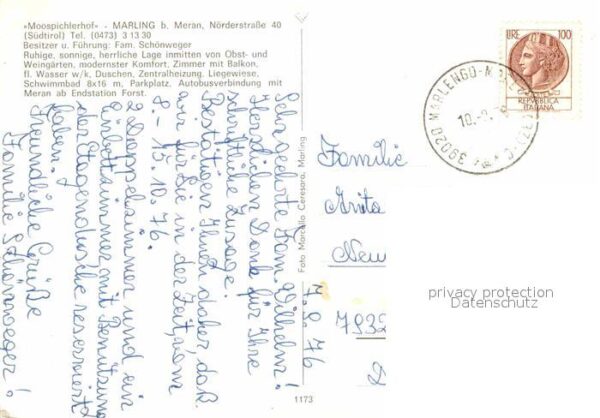 »Moospichlerhof« - MARLING b. Meran, Nörderstraße 40
(Südtirol) Tel. (0473) 3 13 30
Besitzer u. Führung: Fam. Schönweger
Ruhige, sonnige, herrliche Lage inmitten von Obst- und
Weingärten, modernster Komfort, Zimmer mit Balkon,
fl. Wasser w/k, Duschen, Zentralheizung. Liegewiese,
Schwimmbad 8x16 m, Parkplatz. Autobusverbindung mit
Meran ab Endstation Forst.
7.9.76
Sehr geehrte Fam. Wilhelm!
Herzlichen Dank für Ihre
schriftliche Zusage.
Bestätigen Ihnen daher, daß
wir für Sie in der Zeit vom
9. - 15.10.76.
2 Doppelzimmer und ein
Einbettzimmer mit Benützung
der Etagendusche reserviert
haben.
Freundliche Grüße
Familie Schönweger!
Foto Marcello Ceresara, Marling
1173
LIRE 100
REPVBBLICA
ITALIANA
39020 MARLENGO-
10.
Familie
Anita
New
7932
privacy protection
Datenschutz